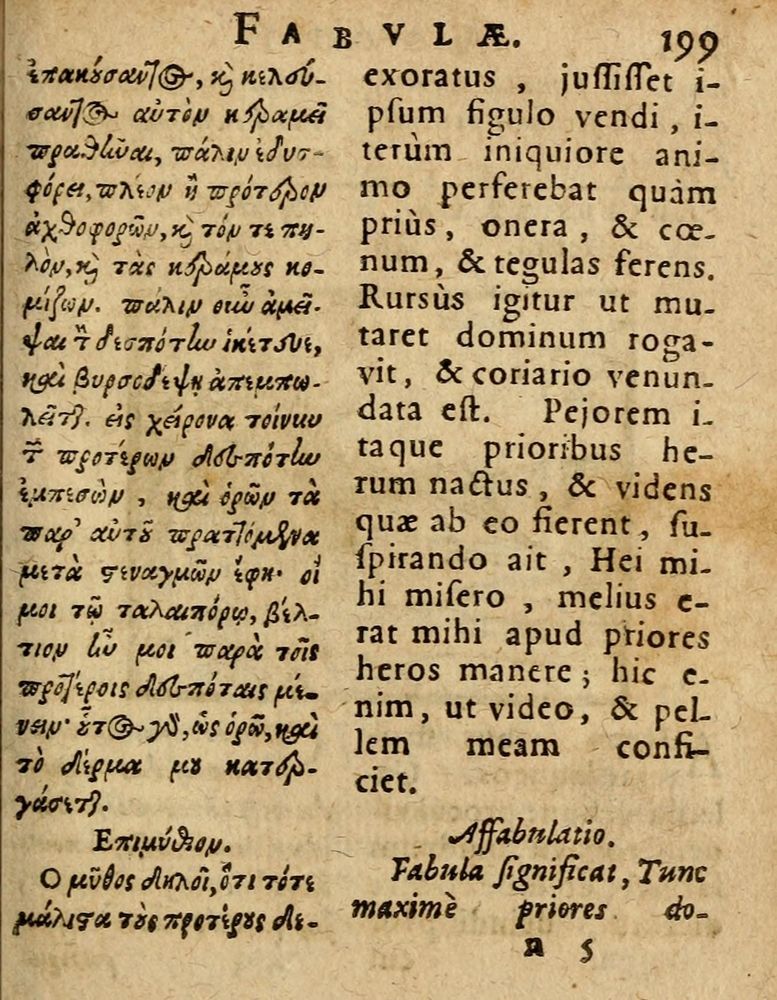 FABVLÆ. 199
ἐπακούσαντος, καὶ κελεύ-
σαντος αὐτὸν κεραμεῖ
πραθῆναι, πάλιν ἐδυσ-
φόρει, πλέον ἢ πρότερον
ἀχθοφορῶν, καὶ τόν τε πη-
λὸν, καὶ τὰς κεράμους κο-
μίζων. πάλιν οὖν ἀμεῖ-
ψαι τὸν δεσπότην ἱκέτευε,
καὶ βυρσοδέψῃ ἀπεμπω-
λεῖται. εἰς χείρονα τοίνυν
τῶν προτέρων δεσπότην
ἐμπεσὼν, καὶ ὁρῶν τὰ
παρ' αὐτοῦ πραττόμενα
μετὰ στεναγμῶν ἔφη· οἴ
μοι τῷ ταλαιπόρῳ, βέλ-
τιον ἦν μοι παρὰ τοῖς
προτέροις δεσπόταις μέ-
νειν· οὗτος γὰρ, ὡς ὁρῶ, καὶ
τὸ δέρμα μου κατερ-
γάσεται.
Ἐπιμύθιον.
Ὁ μῦθος δηλοῖ, ὅτι τότε
μάλιστα τοὺς προτέρους δε-
exoratus, juſſiſſet i-
pſum figulo vendi, i-
terùm iniquiore ani-
mo perferebat quàm
priùs, onera, & cœ-
num, & tegulas ferens.
Rursùs igitur ut mu-
taret dominum roga-
vit, & coriario venun-
data eſt. Pejorem i-
taque prioribus he-
rum nactus, & videns
quæ ab eo fierent, ſu-
ſpirando ait, Hei mi-
hi miſero, melius e-
rat mihi apud priores
heros manere; hic e-
nim, ut video, & pel-
lem meam confi-
ciet.
Affabulatio.
Fabula ſignificat, Tunc
maximè priores do-
n 5